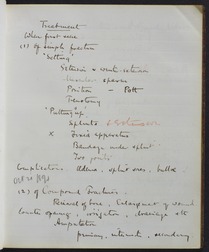 Treatment
When first seen
(1) Of simple fracture
"Setting"
Extension & counter-extension
Muscular spasm
Position - Pott
Tenotomy
"Putting up"
Splints & Extension
x Fixed apparatus
Bandage under splint
Two joints
Complications. Oedema, splint sores, bullae
(2) Of Compound Fracture.
Removal of bone, Enlargement of wound
Counter opening, irrigation, drainage etc
Amputation
primary, intermed, secondary